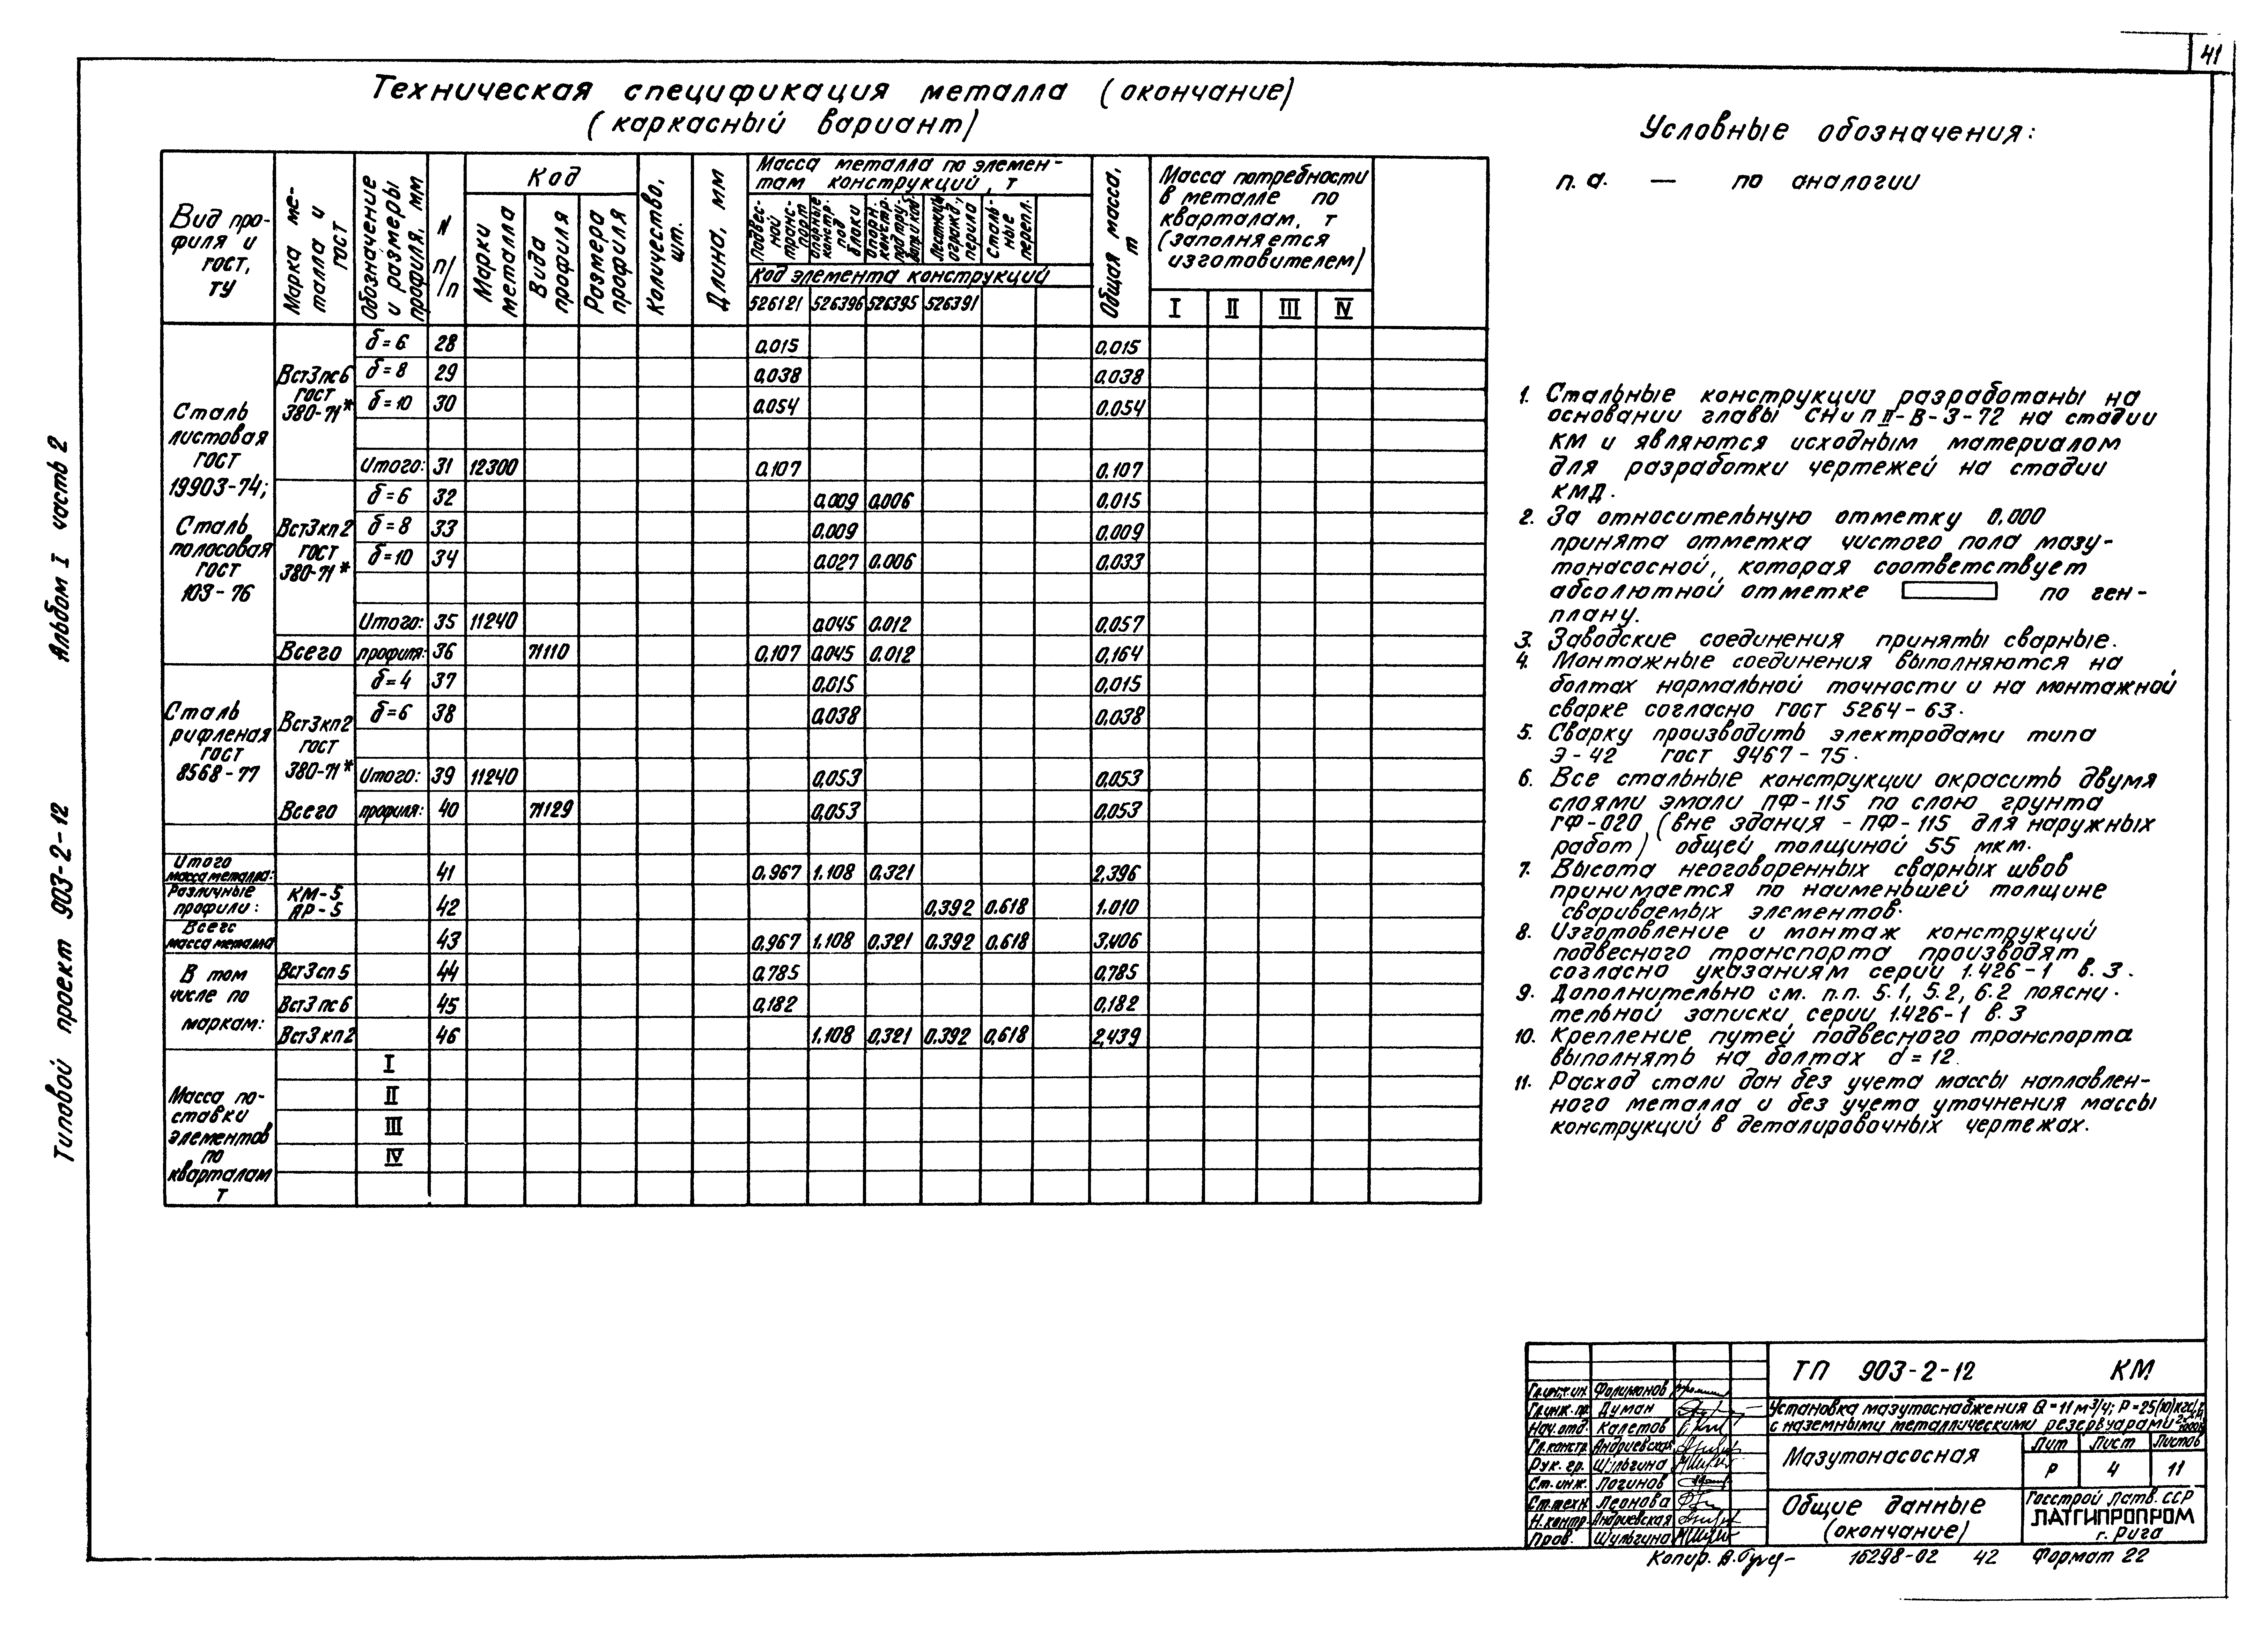 41
Техническая спецификация металла (окончание)
(каркасный вариант)
Условные обозначения:
п.а. — по аналогии
Вид про-
филя и
ГОСТ,
ТУ
Марка ме-
талла и
ГОСТ
Обозначение
и размеры
профиля, мм
N
п/п
Код
Марки
металла
Вида
профиля
Размера
профиля
Количество,
шт.
Длина, мм
Масса металла по элемен-
там конструкций, т
Подвес-
ной
транс-
порт
Опорные
констр.
под
блоки
Опорн.
констр.
Лестницы
огражд.,
перила
Сталь-
ные
перепл.
Код элемента конструкций
526121 526396 526395 526391
Общая масса,
т
Масса потребности
в металле по
кварталам, т
(заполняется
изготовителем)
I II III IV
Сталь
листовая
ГОСТ
19903-74;
Сталь
полосовая
ГОСТ
103-76
Вст3пс6
ГОСТ
380-71*
δ=6 28 0.015 0,015
δ=8 29 0.038 0.038
δ=10 30 0.054 0.054
Итого: 31 12300 0.107 0.107
Вст3кп2
ГОСТ
380-71*
δ=6 32 0.009 0.006 0.015
δ=8 33 0.009 0.009
δ=10 34 0.027 0.006 0.033
Итого: 35 11240 0.045 0.012 0.057
Всего профиля: 36 71110 0,107 0.045 0.012 0,164
Сталь
рифленая
ГОСТ
8568-77
Вст3кп2
ГОСТ
380-71*
δ=4 37 0.015 0.015
δ=6 38 0.038 0.038
Итого: 39 11240 0.053 0.053
Всего профиля: 40 71129 0,053 0,053
Итого
масса металла: 41 0.967 1.108 0.321 2,396
Различные
профили: КМ-5
АР-5 42 0,392 0.618 1.010
Всего
масса металла 43 0.967 1.108 0.321 0.392 0.618 3,406
В том
числе по
маркам:
Вст3сп5 44 0.785 0,785
Вст3пс6 45 0,182 0,182
Вст3кп2 46 1.108 0,321 0.392 0,618 2,439
Масса по-
ставки
элементов
по
кварталам
т
I
II
III
IV
1. Стальные конструкции разработаны на
основании главы СНиП II-В-3-72 на стадии
КМ и являются исходным материалом
для разработки чертежей на стадии
КМД.
2. За относительную отметку 0.000
принята отметка чистого пола мазу-
тонасосной, которая соответствует
абсолютной отметке по ген-
плану.
3. Заводские соединения приняты сварные.
4. Монтажные соединения выполняются на
болтах нормальной точности и на монтажной
сварке согласно ГОСТ 5264-63.
5. Сварку производить электродами типа
Э-42 ГОСТ 9467-75.
6. Все стальные конструкции окрасить двумя
слоями эмали ПФ-115 по слою грунта
ГФ-020 (вне здания - ПФ-115 для наружных
работ) общей толщиной 55 мкм.
7. Высота неоговоренных сварных швов
принимается по наименьшей толщине
свариваемых элементов.
8. Изготовление и монтаж конструкций
подвесного транспорта производят
согласно указаниям серии 1.426-1 в.3.
9. Дополнительно см. п.п. 5.1, 5.2, 6.2 поясни-
тельной записки серии 1.426-1 в.3
10. Крепление путей подвесного транспорта
выполнять на болтах d=12.
11. Расход стали дан без учета массы наплавлен-
ного металла и без учета уточнения массы
конструкций в деталировочных чертежах.
Альбом I часть 2
Типовой проект 903-2-12
Гл.инж.ин. Фолимонов
Гл.инж.пр. Думан
Нач.отд. Калетов
Гл.констр. Андриевская
Рук.гр. Шульгина
Ст.инж. Логинов
Ст.техн. Леонова
Н.контр. Андриевская
Пров. Шульгина
ТП 903-2-12 КМ
Установка мазутоснабжения Q=11 м³/ч; Р=25(10)кгс/
с наземными металлическими резервуарами
Мазутонасосная
Лит Лист Листов
Р 4 11
Общие данные
(окончание)
Госстрой Латв.ССР
ЛАТГИПРОПРОМ
г. Рига
Копир. 16298-02 42 Формат 22